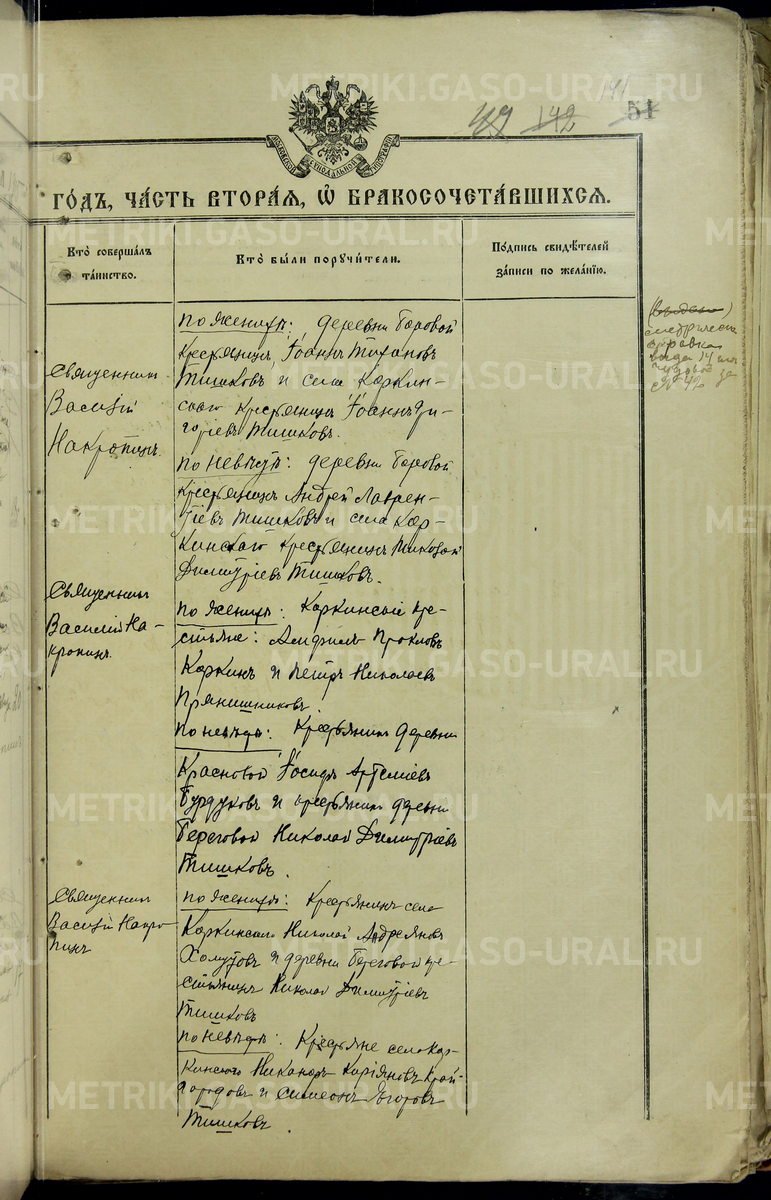 METRIKI.GASO-URAL.RU
141
142
51
МОСКОВСКОЙ СѴНОДАЛЬНОЙ ТИПОГРАФІИ
ГО́ДЪ, ЧА́СТЬ ВТОРА́Я, Ѡ҆ БРАКОСОЧЕТА́ВШИХСЯ.
Кто̀ соверша́лъ
та́инство.
Кто̀ бы́ли поручи́тели.
По́дпись свидѣ́телей
за́писи по жела́нїю.
Священникъ
Василій
Накропинъ
По женихѣ: деревни Боровой
крестьянинъ Іоаннъ
Тишковъ и села Каркин-
скаго крестьянинъ Іоаннъ Ди-
Тишковъ.
По невѣстѣ: деревни Боровой
крестьянинъ Андрей Лаврен-
тіевъ Тишковъ и села Кар-
кинскаго крестьянинъ Николай
Димитріевъ Тишковъ.
Священникъ
Василій На-
кропинъ.
По женихѣ: Каркинскіе кре-
стьяне: Прокловъ
Каркинъ и Петръ Николаевъ
Прянишниковъ.
По невѣстѣ: Крестьянинъ деревни
Красновой Іосифъ Артеміевъ
Бурдуковъ и крестьянинъ деревни
Береговой Николай Димитріевъ
Тишковъ.
Священникъ
Василій Накро-
пинъ
По женихѣ: Крестьянинъ села
Каркинскаго Николай Андреяновъ
и деревни Береговой кре-
стьянинъ Николай Димитріевъ
Тишковъ
По невѣстѣ: Крестьяне села Кар-
кинскаго Никаноръ
и Симеонъ Егоровъ
Тишковъ.